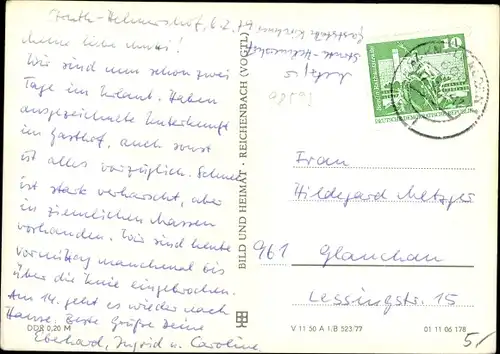 Struth-Helmershof, 6.2.79
Meine liebe Mutti!
Wir sind nun schon zwei
Tage im Urlaub. Haben
ausgezeichnete Unterkunft
im Gasthof, auch sonst
ist alles vorzüglich. Schnee
ist stark verharscht, aber
in ziemlichen Massen
vorhanden. Wir sind heute
Vormittag manchmal bis
über die Knie eingebrochen.
Am 14. geht es wieder nach
Hause. Beste Grüße Deine
Eberhard, Ingrid u. Caroline
DDR 0,20 M
Gaststätte
Struth-Helmershof
BILD UND HEIMAT · REICHENBACH (VOGTL)
Frau
Hildegard Metzger
961 Glauchau
Lessingstr. 15
V 11 50 A 1/B 523/77
01 11 06 178
5/